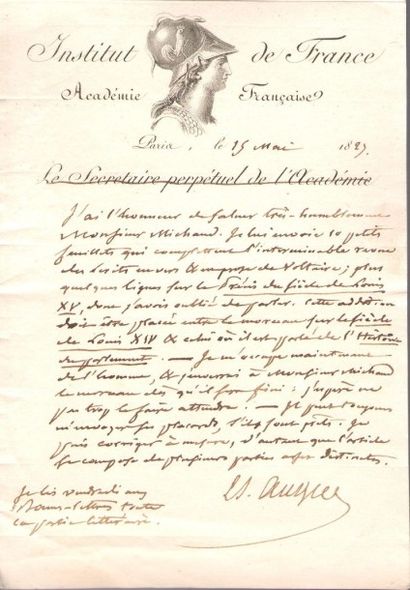 Institut de France
Académie Française
Paris, le 25 Mai 1827.
Le Secrétaire perpétuel de l'Académie
J'ai l'honneur de saluer très-humblement
Monsieur Michaud. Je lui envoie 10 petits
feuillets qui complettent l'interminable revue
des écrits en vers & en prose de Voltaire; plus
quelques lignes sur le Précis du siècle de Louis
XV, dont j'avois oublié de parler. Cette addition
doit être placée entre le morceau sur le siècle
de Louis XIV & celui où il est parlé de l'Histoire
du parlement. — Je m'occupe maintenant
de l'homme, & j'enverrai à Monsieur Michaud
le morceau dès qu'il sera fini: j'espère ne
pas trop le faire attendre. — Il peut toujours
m'envoyer les placards, s'ils sont prêts. Je
puis corriger à mesure, d'autant que l'article
se compose de plusieurs parties assez distinctes.
Je lis vendredi aux
Bonnes-lettres toute
la partie littéraire.